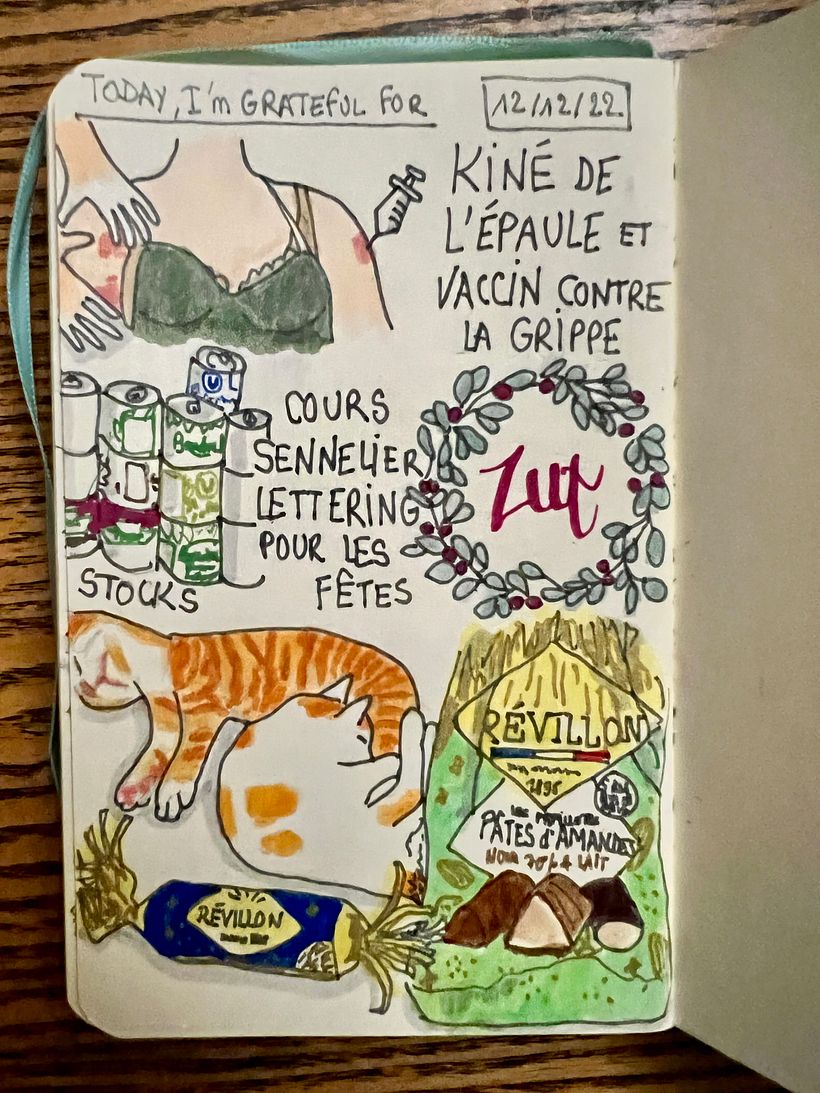 TODAY, I'm GRATEFUL FOR
12/12/22
KINÉ DE
L'ÉPAULE ET
VACCIN CONTRE
LA GRIPPE
COURS
SENNELIER
LETTERING
POUR LES
FÊTES
Zut
STOCKS
RÉVILLON
PÂTES d'AMANDES
NOIR 70% & LAIT
RÉVILLON